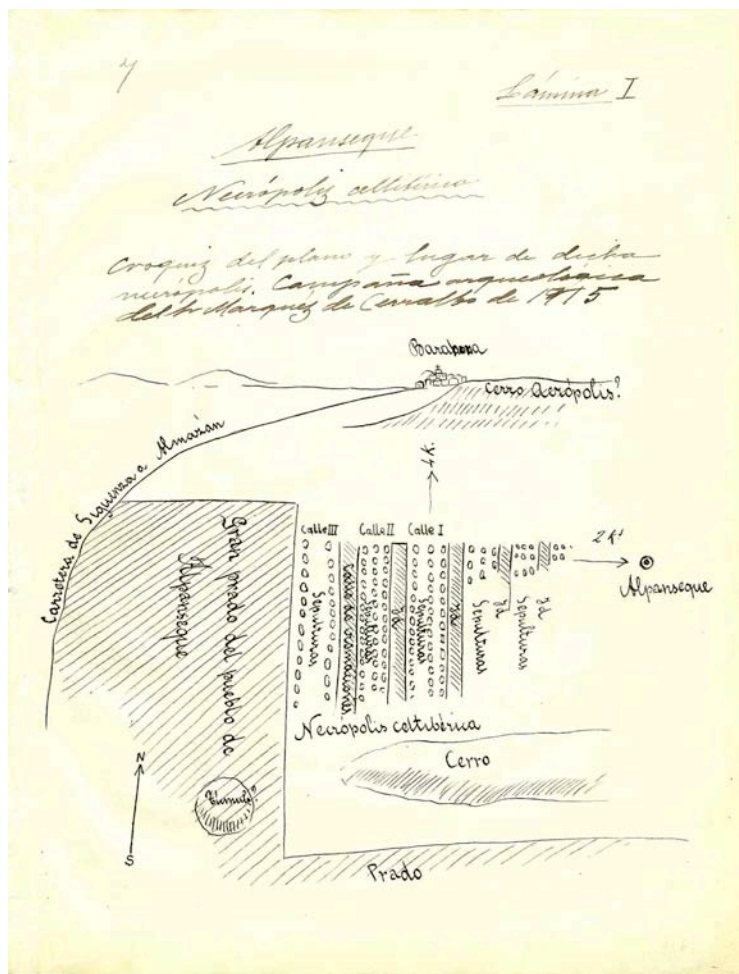 Lámina I
Alpanseque
Necrópolis celtibérica
Croquiz del plano y lugar de dicha
necrópolis. Campaña arqueologica
del Sr Marquez de Cerralbo de 1915
Barahona
Cerro Acrópolis?
Carretera de Sigüenza a Almazán
4 K.
Gran prado del pueblo de
Alpanseque
Calle III
Calle II
Calle I
2 Ks
Alpanseque
Sepulturas
Calle de incineraciones
Sepulturas
Id
Sepulturas
Id
Sepulturas
Id
Sepulturas
Id
Necrópolis celtibérica
Cerro
N
S
Túmulo?
Prado